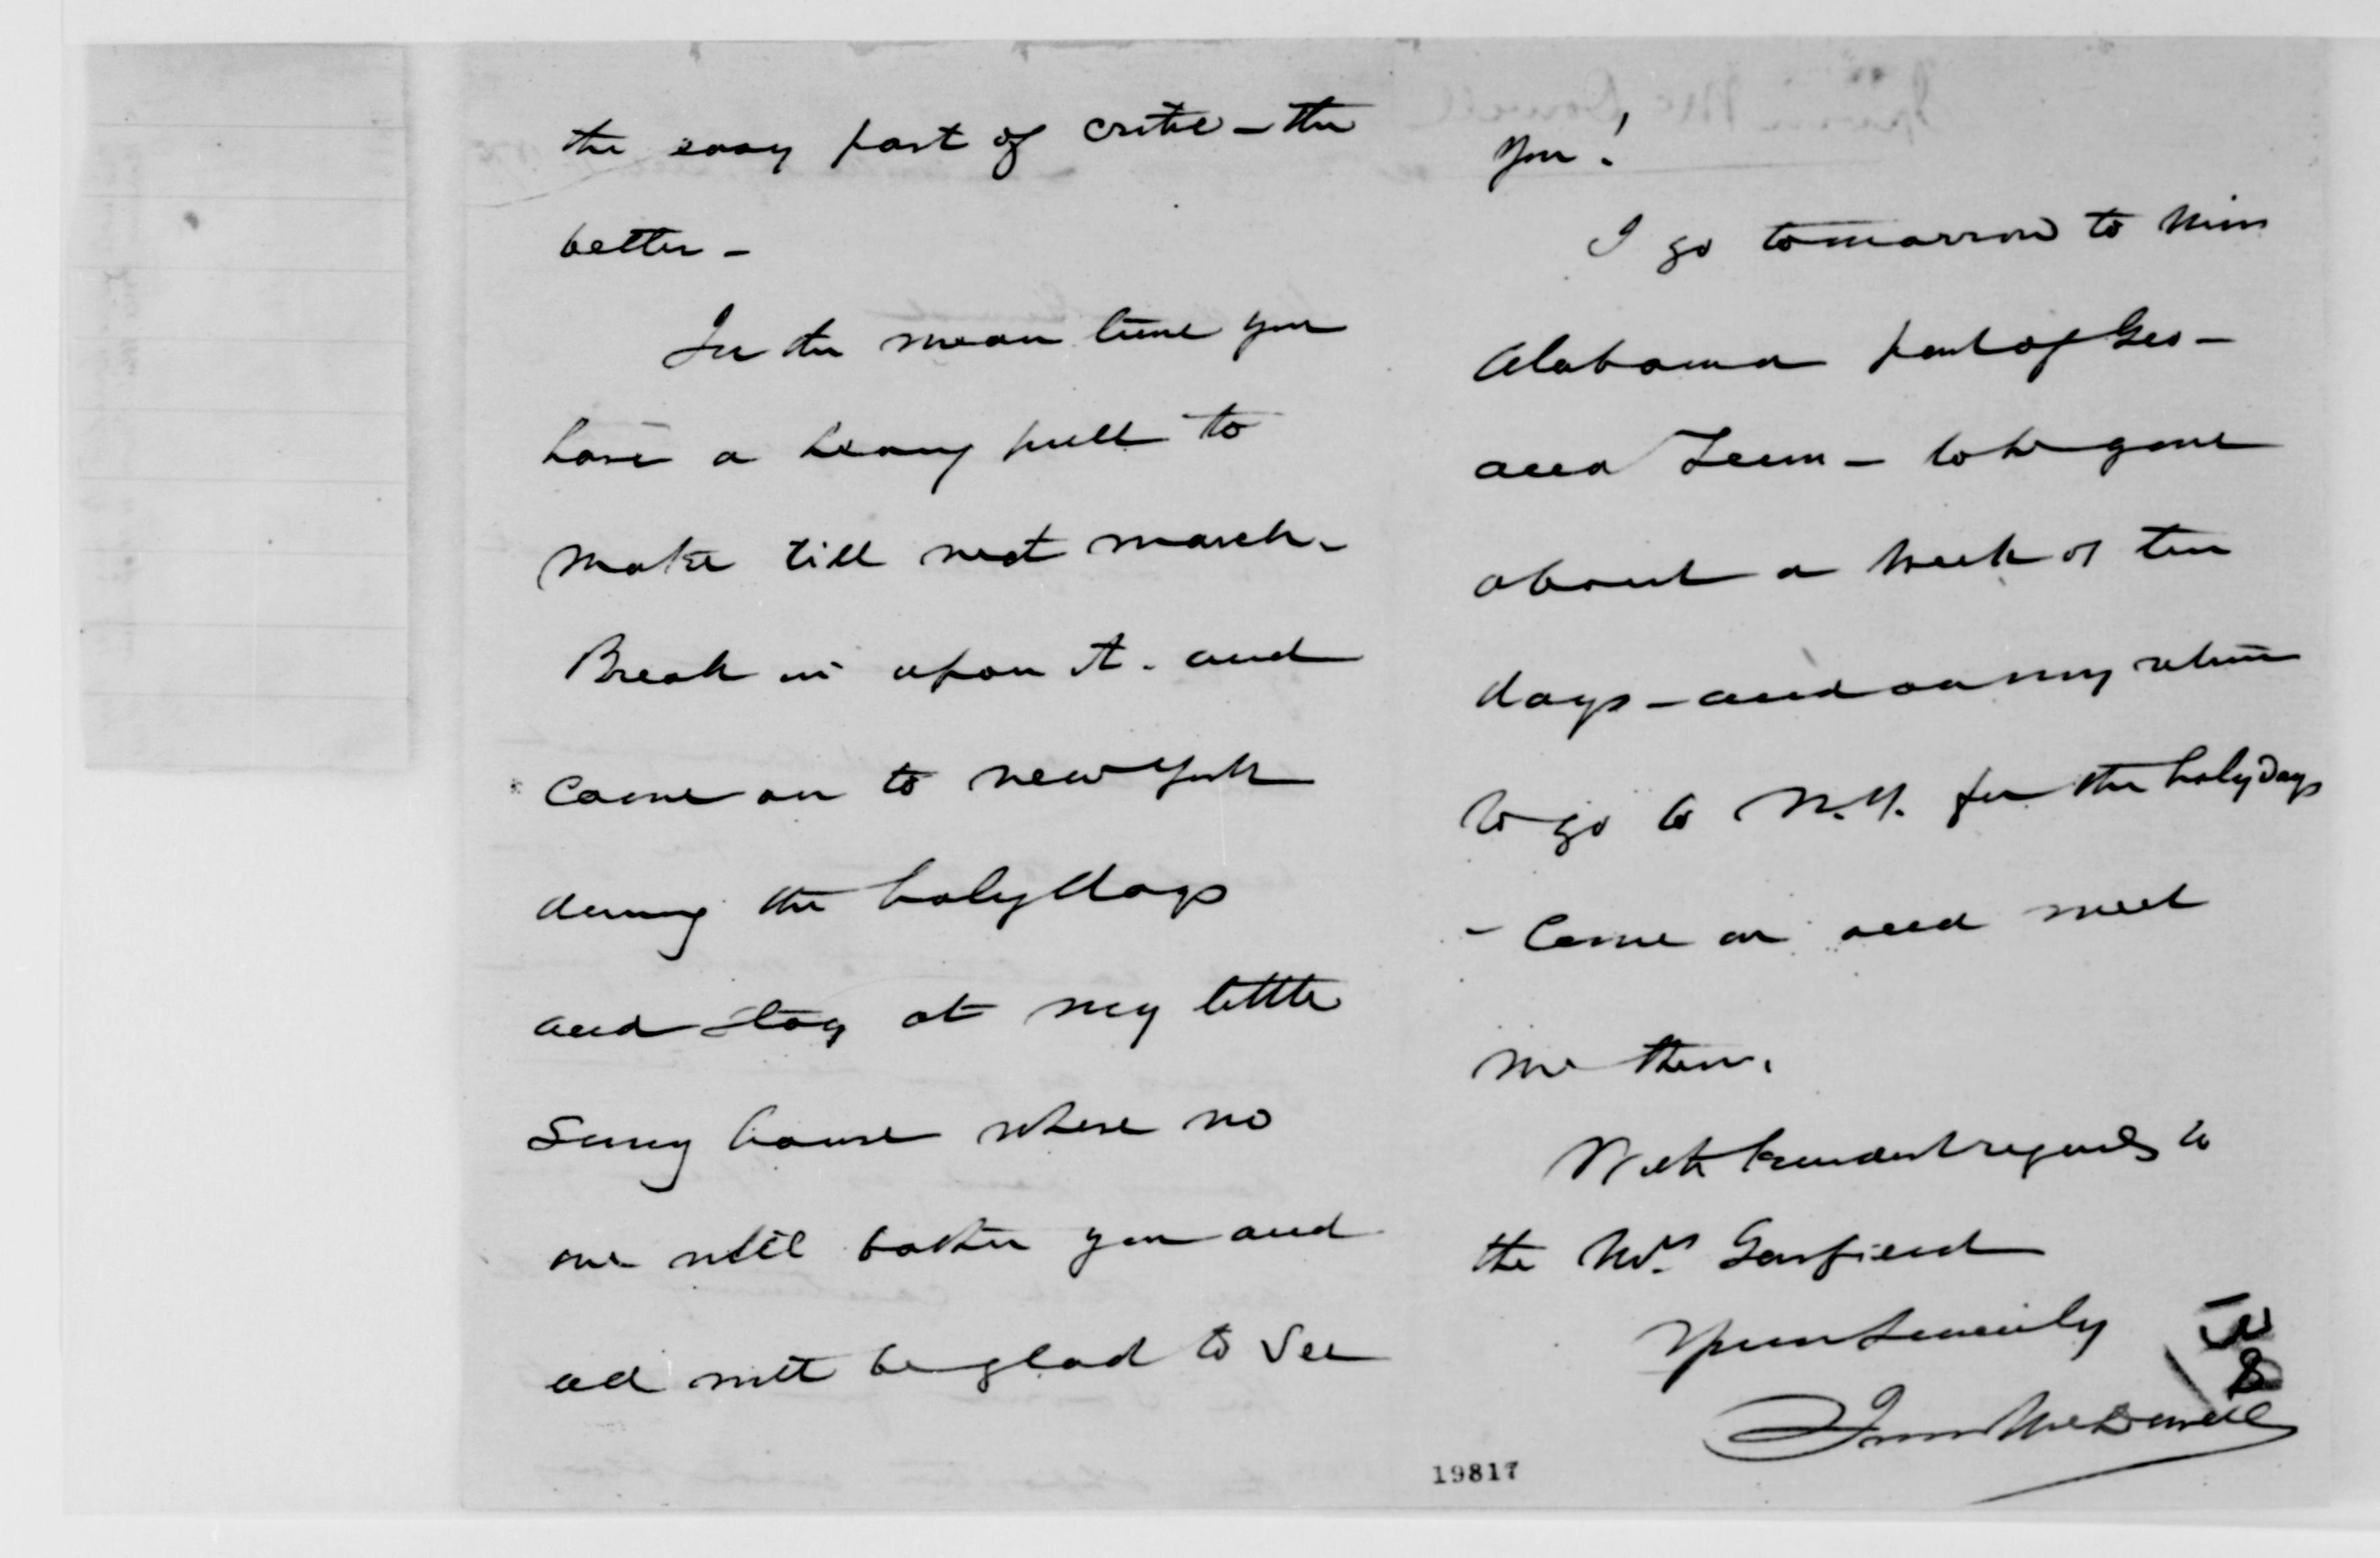 the easy part of critic — the
better —
In the mean time you
have a heavy pull to
make till next march.
Break in upon it. and
Come on to New York
during the holydays
and stay at my little
snug house where no
one will bother you and
all will be glad to see
you!
I go tomorrow to Miss
Alabama part of Geo —
and Tenn — to be gone
about a week or ten
days — and on my return
to go to N.Y. for the holydays
— Come on and meet
me there.
With kindest regards to
the Mrs. Garfield
Yours sincerely
Irvin McDowell
19817